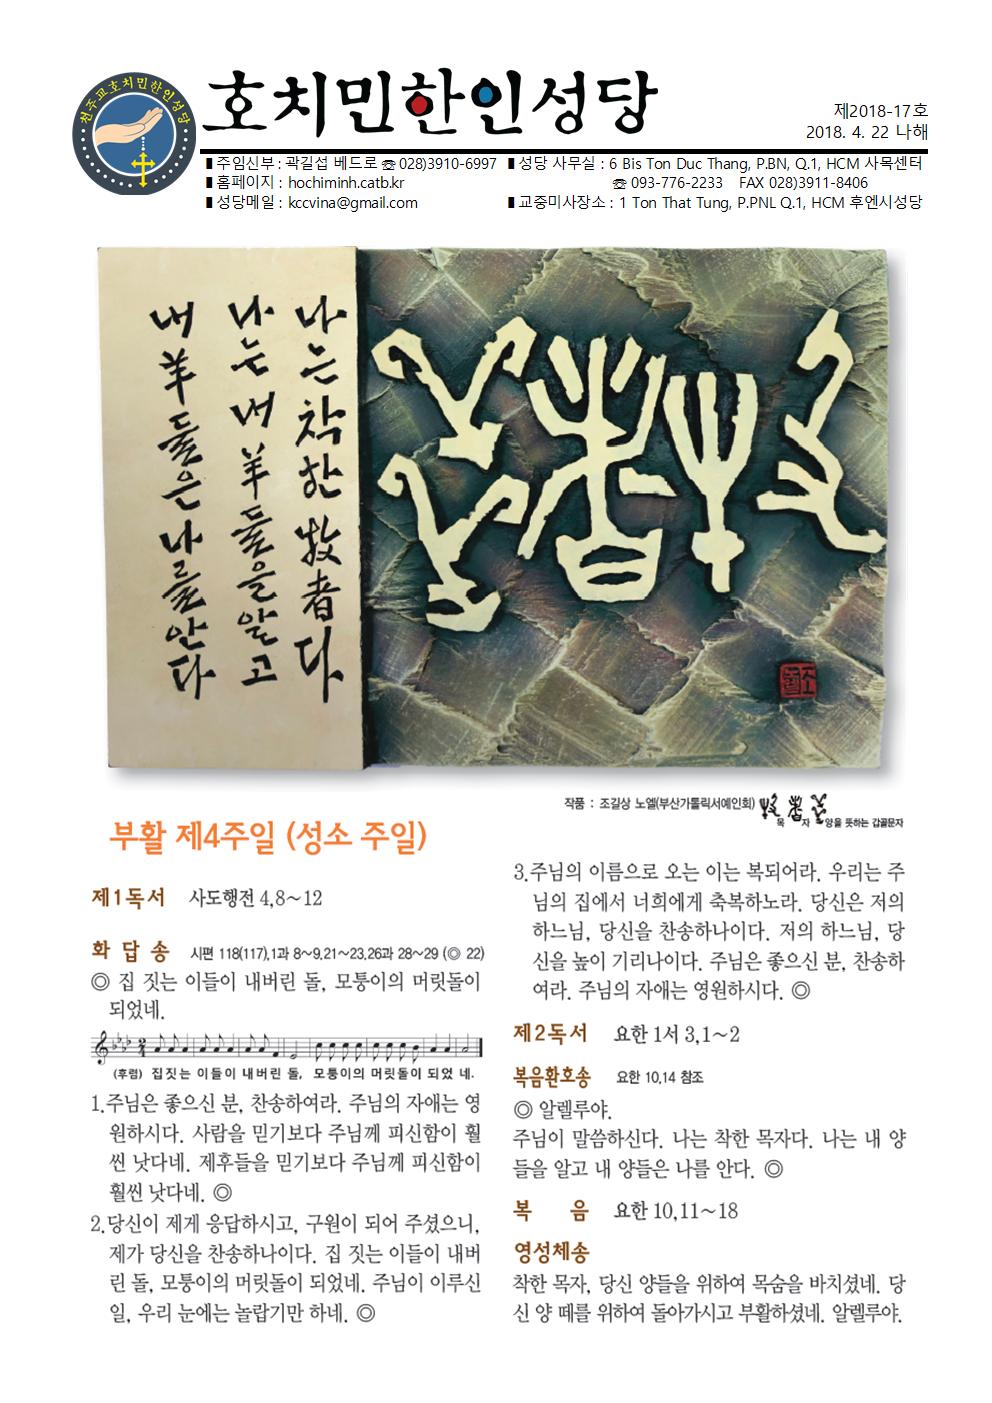 천주교호치민한인성당
호치민한인성당
제2018-17호
2018. 4. 22 나해
▮주임신부 : 곽길섭 베드로 ☏ 028)3910-6997
▮홈페이지 : hochiminh.catb.kr
▮성당메일 : kccvina@gmail.com
▮성당 사무실 : 6 Bis Ton Duc Thang, P.BN, Q.1, HCM 사목센터
☏ 093-776-2233 FAX 028)3911-8406
▮교중미사장소 : 1 Ton That Tung, P.PNL Q.1, HCM 후엔시성당
나는 착한 牧者다
나는 내 羊들을 알고
내 羊들은 나를 안다
작품 : 조길상 노엘(부산가톨릭서예인회)
목 자 양을 뜻하는 갑골문자
부활 제4주일 (성소 주일)
제1독서 사도행전 4,8~12
화 답 송 시편 118(117),1과 8~9.21~23.26과 28~29 (◎ 22)
◎ 집 짓는 이들이 내버린 돌, 모퉁이의 머릿돌이
되었네.
(후렴) 집짓는 이들이 내버린 돌, 모퉁이의 머릿돌이 되었 네.
1.주님은 좋으신 분, 찬송하여라. 주님의 자애는 영
원하시다. 사람을 믿기보다 주님께 피신함이 훨
씬 낫다네. 제후들을 믿기보다 주님께 피신함이
훨씬 낫다네. ◎
2.당신이 제게 응답하시고, 구원이 되어 주셨으니,
제가 당신을 찬송하나이다. 집 짓는 이들이 내버
린 돌, 모퉁이의 머릿돌이 되었네. 주님이 이루신
일, 우리 눈에는 놀랍기만 하네. ◎
3.주님의 이름으로 오는 이는 복되어라. 우리는 주
님의 집에서 너희에게 축복하노라. 당신은 저의
하느님, 당신을 찬송하나이다. 저의 하느님, 당
신을 높이 기리나이다. 주님은 좋으신 분, 찬송하
여라. 주님의 자애는 영원하시다. ◎
제2독서 요한 1서 3,1~2
복음환호송 요한 10,14 참조
◎ 알렐루야.
주님이 말씀하신다. 나는 착한 목자다. 나는 내 양
들을 알고 내 양들은 나를 안다. ◎
복 음 요한 10,11~18
영성체송
착한 목자, 당신 양들을 위하여 목숨을 바치셨네. 당
신 양 떼를 위하여 돌아가시고 부활하셨네. 알렐루야.